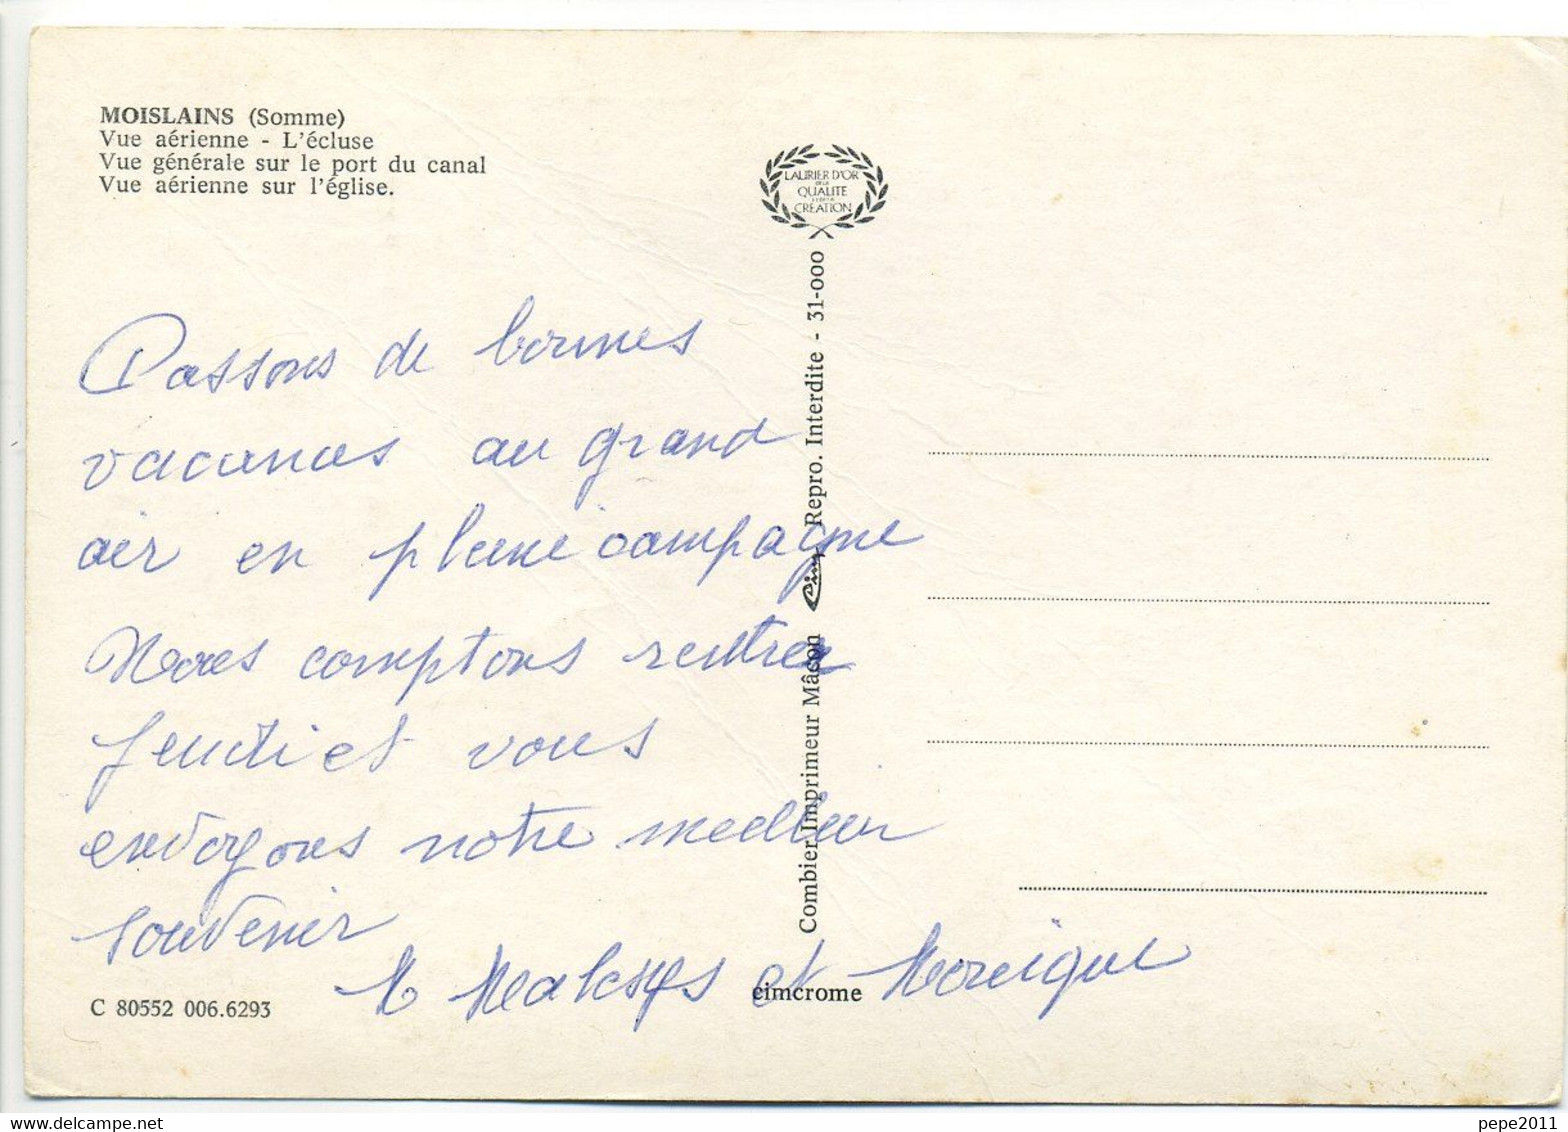 MOISLAINS (Somme)
Vue aérienne - L'écluse
Vue générale sur le port du canal
Vue aérienne sur l'église.
LAURIER D'OR
DE LA
QUALITE
CREATION
Passons de bonnes
vacances au grand
air en pleine campagne
Nous comptons rentrer
jeudi et vous
envoyons notre meilleur
souvenir
M et Monique
C 80552 006.6293
cimcrome
Combier Imprimeur Mâcon Cim Repro. Interdite - 31-000
pepe2011